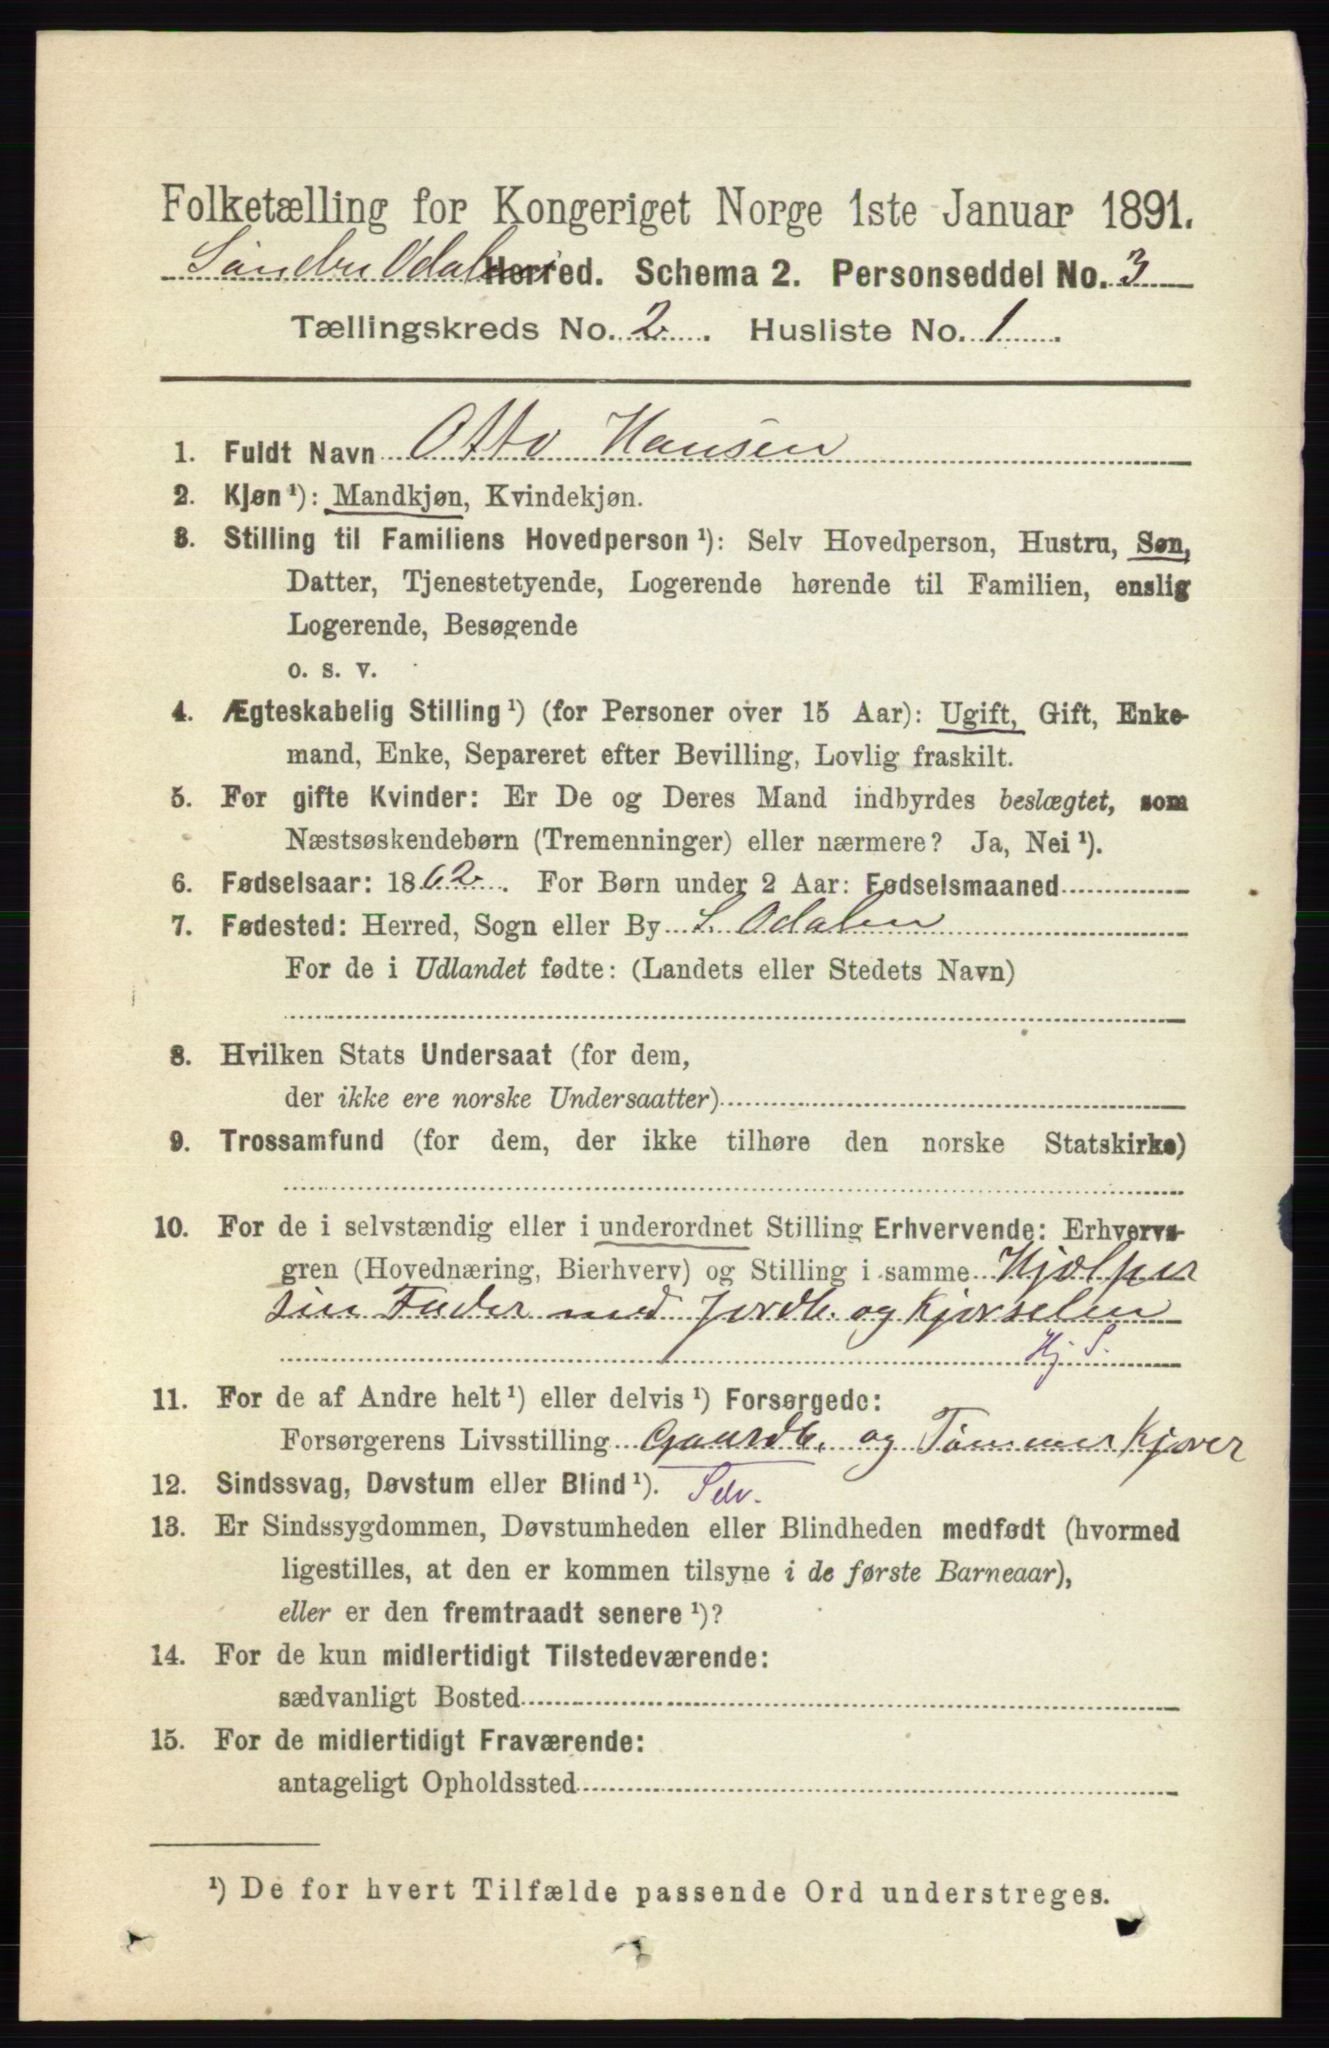 Folketælling for Kongeriget Norge 1ste Januar 1891.
Søndre Odalens Herred. Schema 2. Personseddel No. 3
Tællingskreds No. 2. Husliste No. 1.
1. Fuldt Navn Otto Hansen
2. Kjøn ¹): Mandkjøn, Kvindekjøn.
3. Stilling til Familiens Hovedperson ¹): Selv Hovedperson, Hustru, Søn,
Datter, Tjenestetyende, Logerende hørende til Familien, enslig
Logerende, Besøgende
o. s. v.
4. Ægteskabelig Stilling ¹) (for Personer over 15 Aar): Ugift, Gift, Enke-
mand, Enke, Separeret efter Bevilling, Lovlig fraskilt.
5. For gifte Kvinder: Er De og Deres Mand indbyrdes beslægtet, som
Næstsøskendebørn (Tremenninger) eller nærmere? Ja, Nei ¹).
6. Fødselsaar: 1862. For Børn under 2 Aar: Fødselsmaaned
7. Fødested: Herred, Sogn eller By S. Odalen
For de i Udlandet fødte: (Landets eller Stedets Navn)
8. Hvilken Stats Undersaat (for dem,
der ikke ere norske Undersaatter)
9. Trossamfund (for dem, der ikke tilhøre den norske Statskirke)
10. For de i selvstændig eller i underordnet Stilling Erhvervende: Erhvervs-
gren (Hovednæring, Bierhverv) og Stilling i samme Hjælper
sin Fader med Jordb. og Kjørselen
Hj S.
11. For de af Andre helt ¹) eller delvis ¹) Forsørgede:
Forsørgerens Livsstilling Gaardb. og Tømmer Kjører
12. Sindssvag, Døvstum eller Blind ¹). Selv.
13. Er Sindssygdommen, Døvstumheden eller Blindheden medfødt (hvormed
ligestilles, at den er kommen tilsyne i de første Barneaar),
eller er den fremtraadt senere ¹)?
14. For de kun midlertidigt Tilstedeværende:
sædvanligt Bosted
15. For de midlertidigt Fraværende:
antageligt Opholdssted
¹) De for hvert Tilfælde passende Ord understreges.